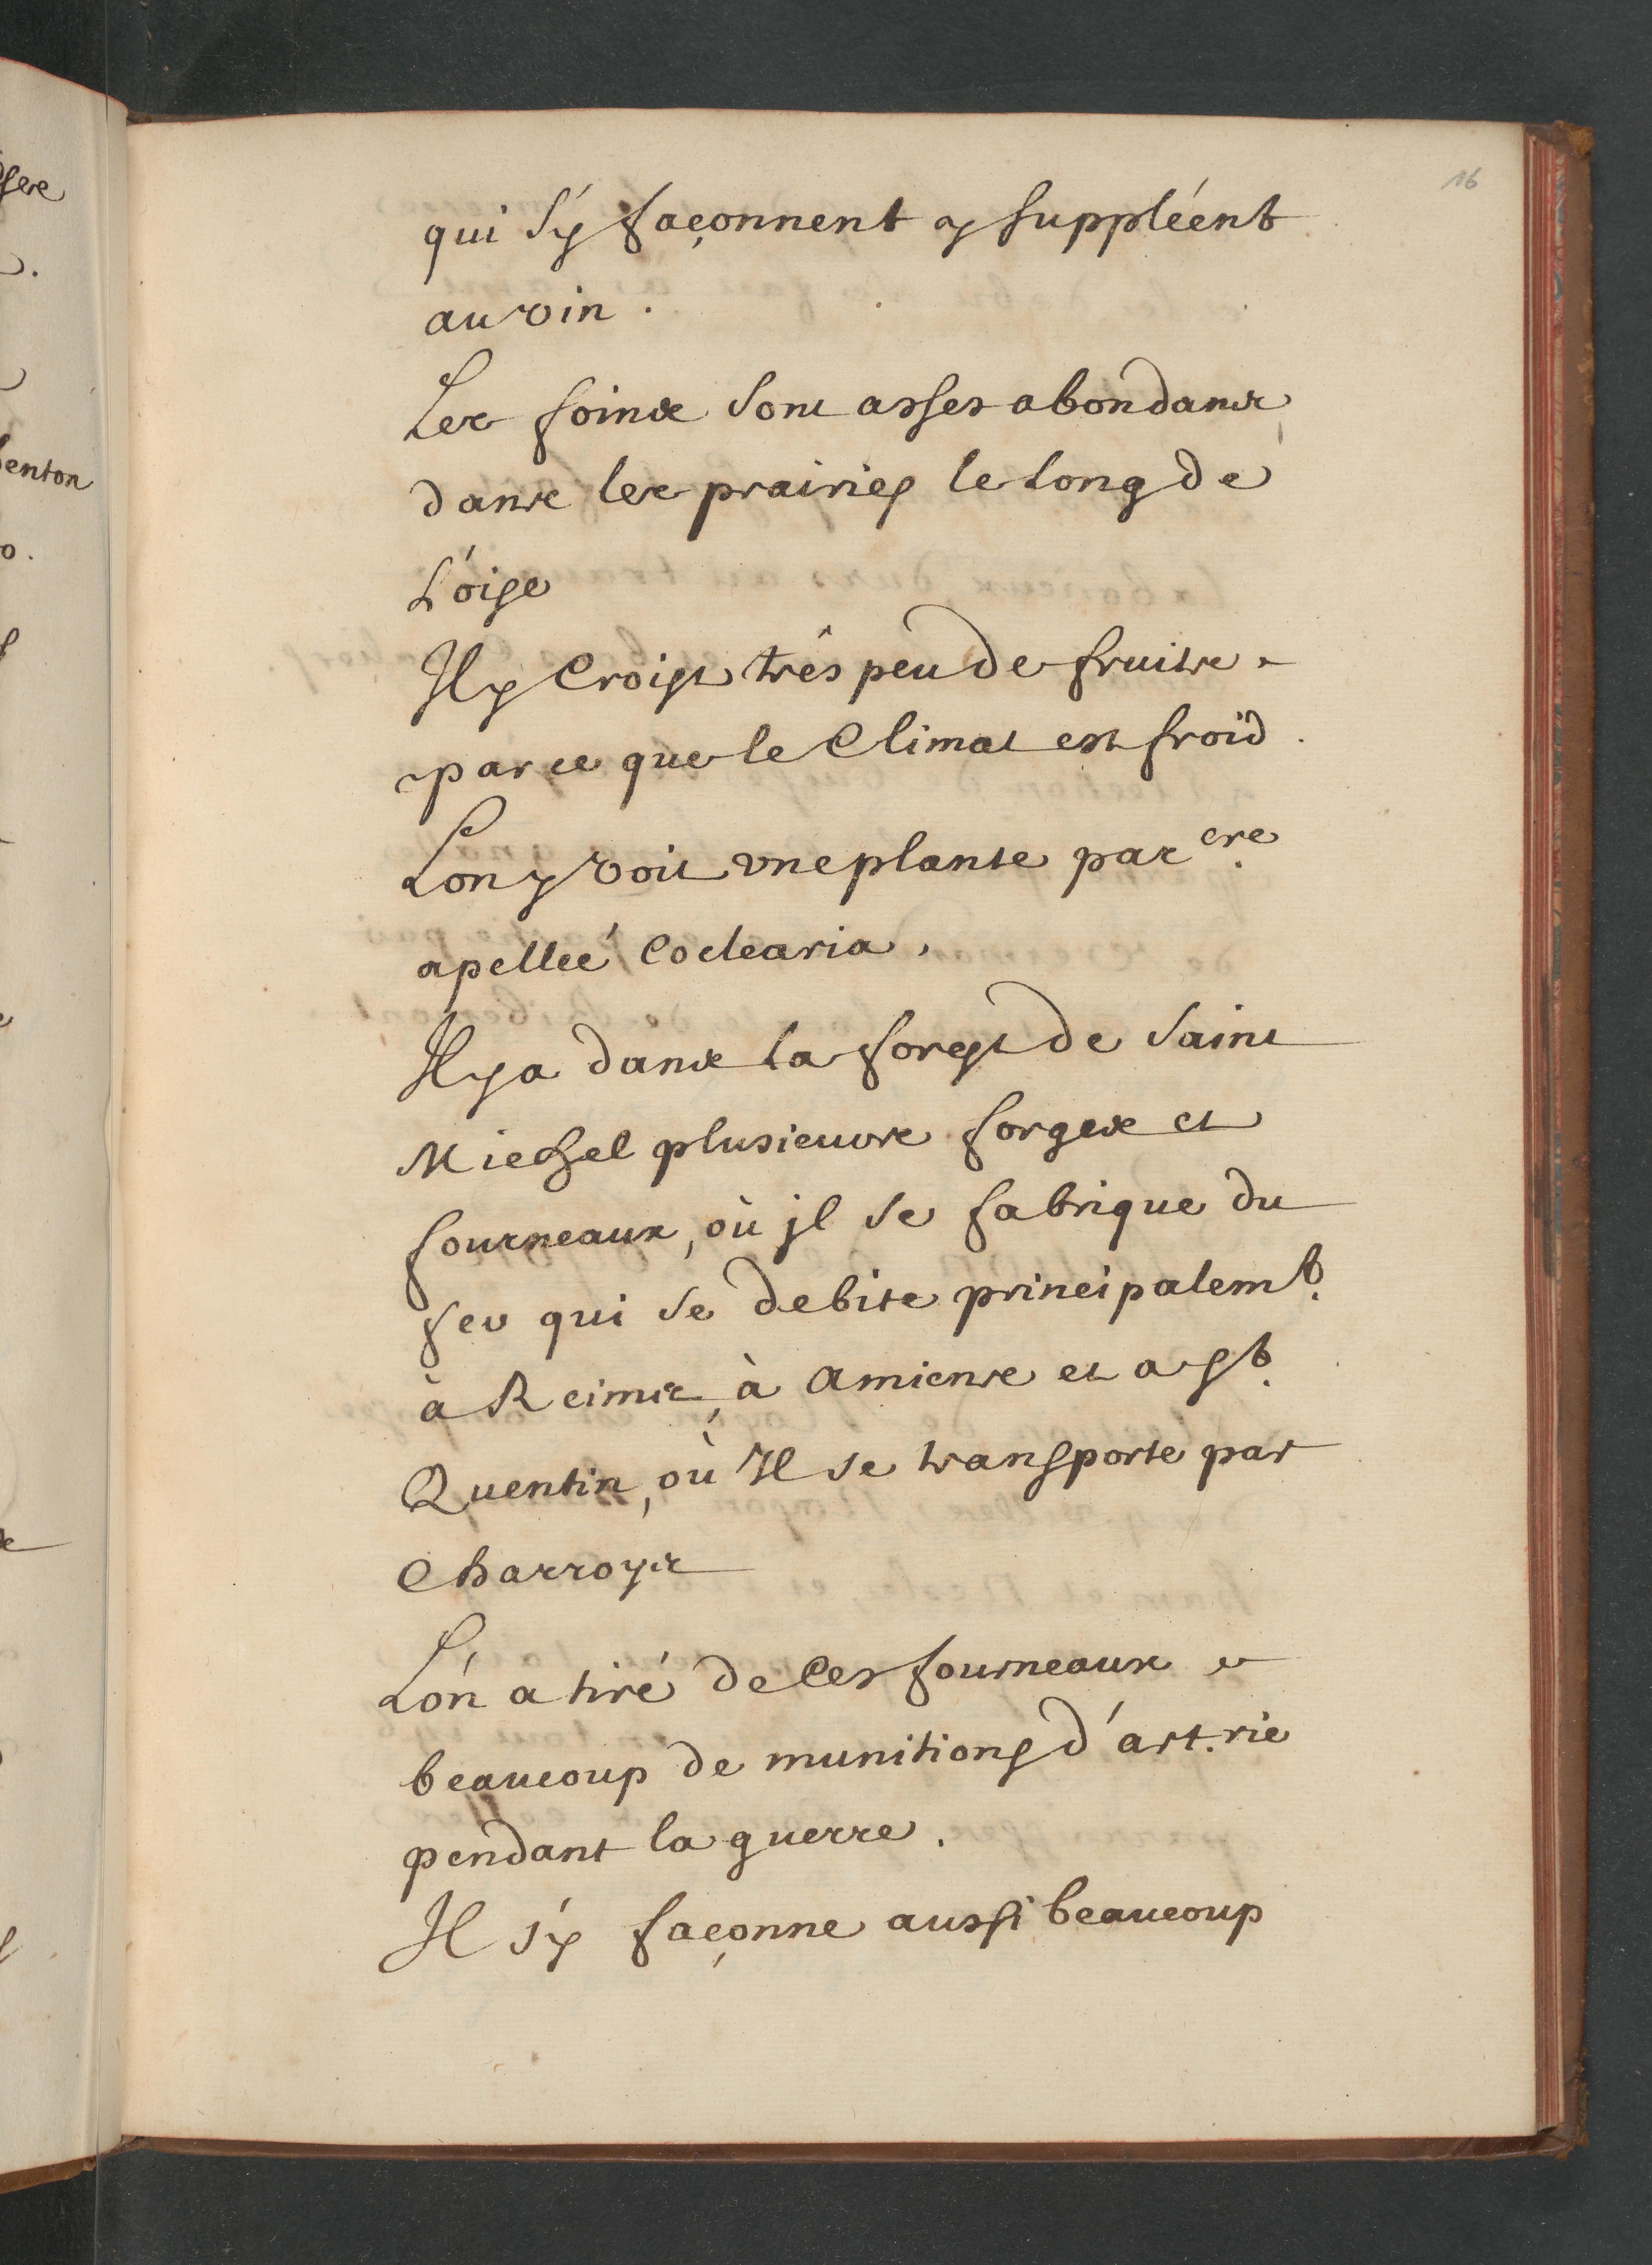 16
qui s'y façonnent y suppléent
au vin.
Les foins sont asses abondans,
dans les prairies le long de
L'oise
Il y Croist trés peu de fruits
parce que le Climat est froid.
Lon y voit vne plante par ere
apellée Coclearia,
Il y a dans la forest de Saint
Michel plusieurs forges et
fourneaux, où jl se fabrique du
fer qui se debite principalemt.
à Reims, à amiens et a st.
Quentin, où Il se transporte par
Charroys
L'on a tiré de Ces fourneaux
beaucoup de munitions d'art.rie
pendant la guerre.
Il s'y façonne aussi beaucoup